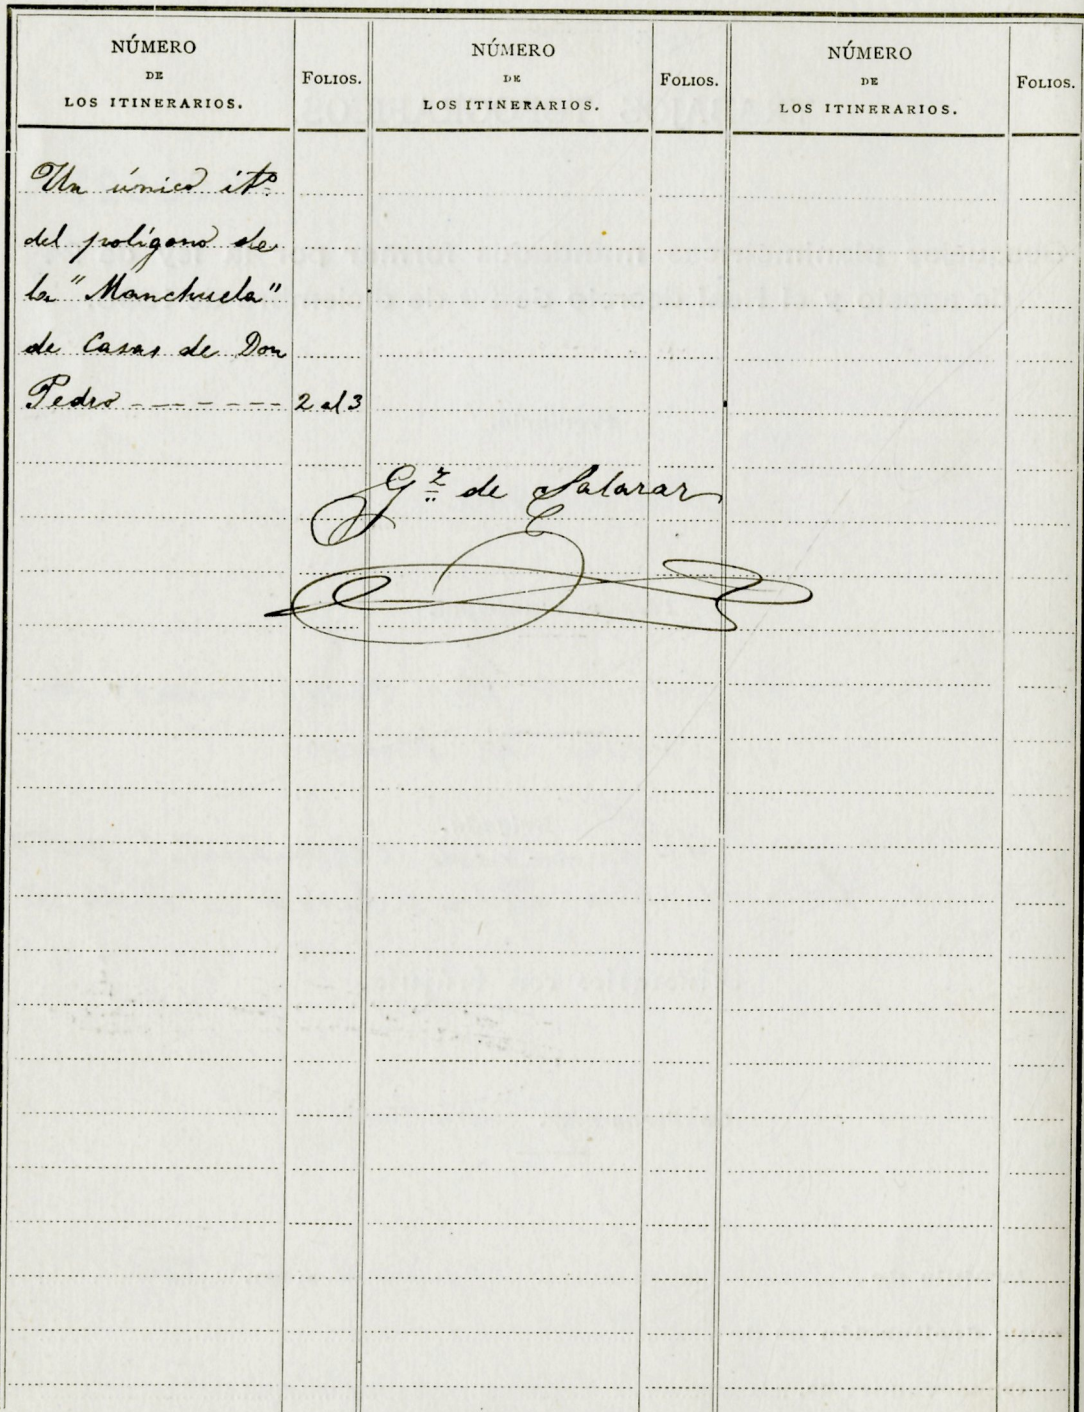 NÚMERO
DE
LOS ITINERARIOS.
FOLIOS.
NÚMERO
DE
LOS ITINERARIOS.
FOLIOS.
NÚMERO
DE
LOS ITINERARIOS.
FOLIOS.
Un único itº
del polígono de
la "Manchuela"
de Casas de Don
Pedro - - - - - - - 2 al 3
Gz de Salazar